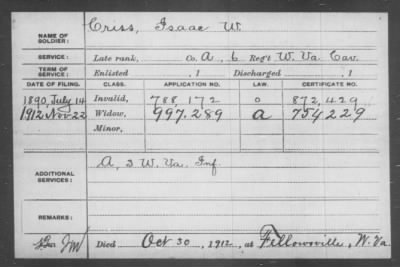 NAME OF SOLDIER: Criss, Isaac W.
SERVICE: Late rank, Co. A, 6 Reg't W. Va. Cav.
TERM OF SERVICE: Enlisted , 1 Discharged , 1
DATE OF FILING. CLASS. APPLICATION NO. LAW. CERTIFICATE NO.
1890, July 14 Invalid, 788,172 o 872,429
1912 Nov. 22 Widow, 997.289 a 754229
Minor,
ADDITIONAL SERVICES: A, 3 W. Va. Inf.
REMARKS:
Died Oct 30, 1912, at Fellowsville, W. Va.